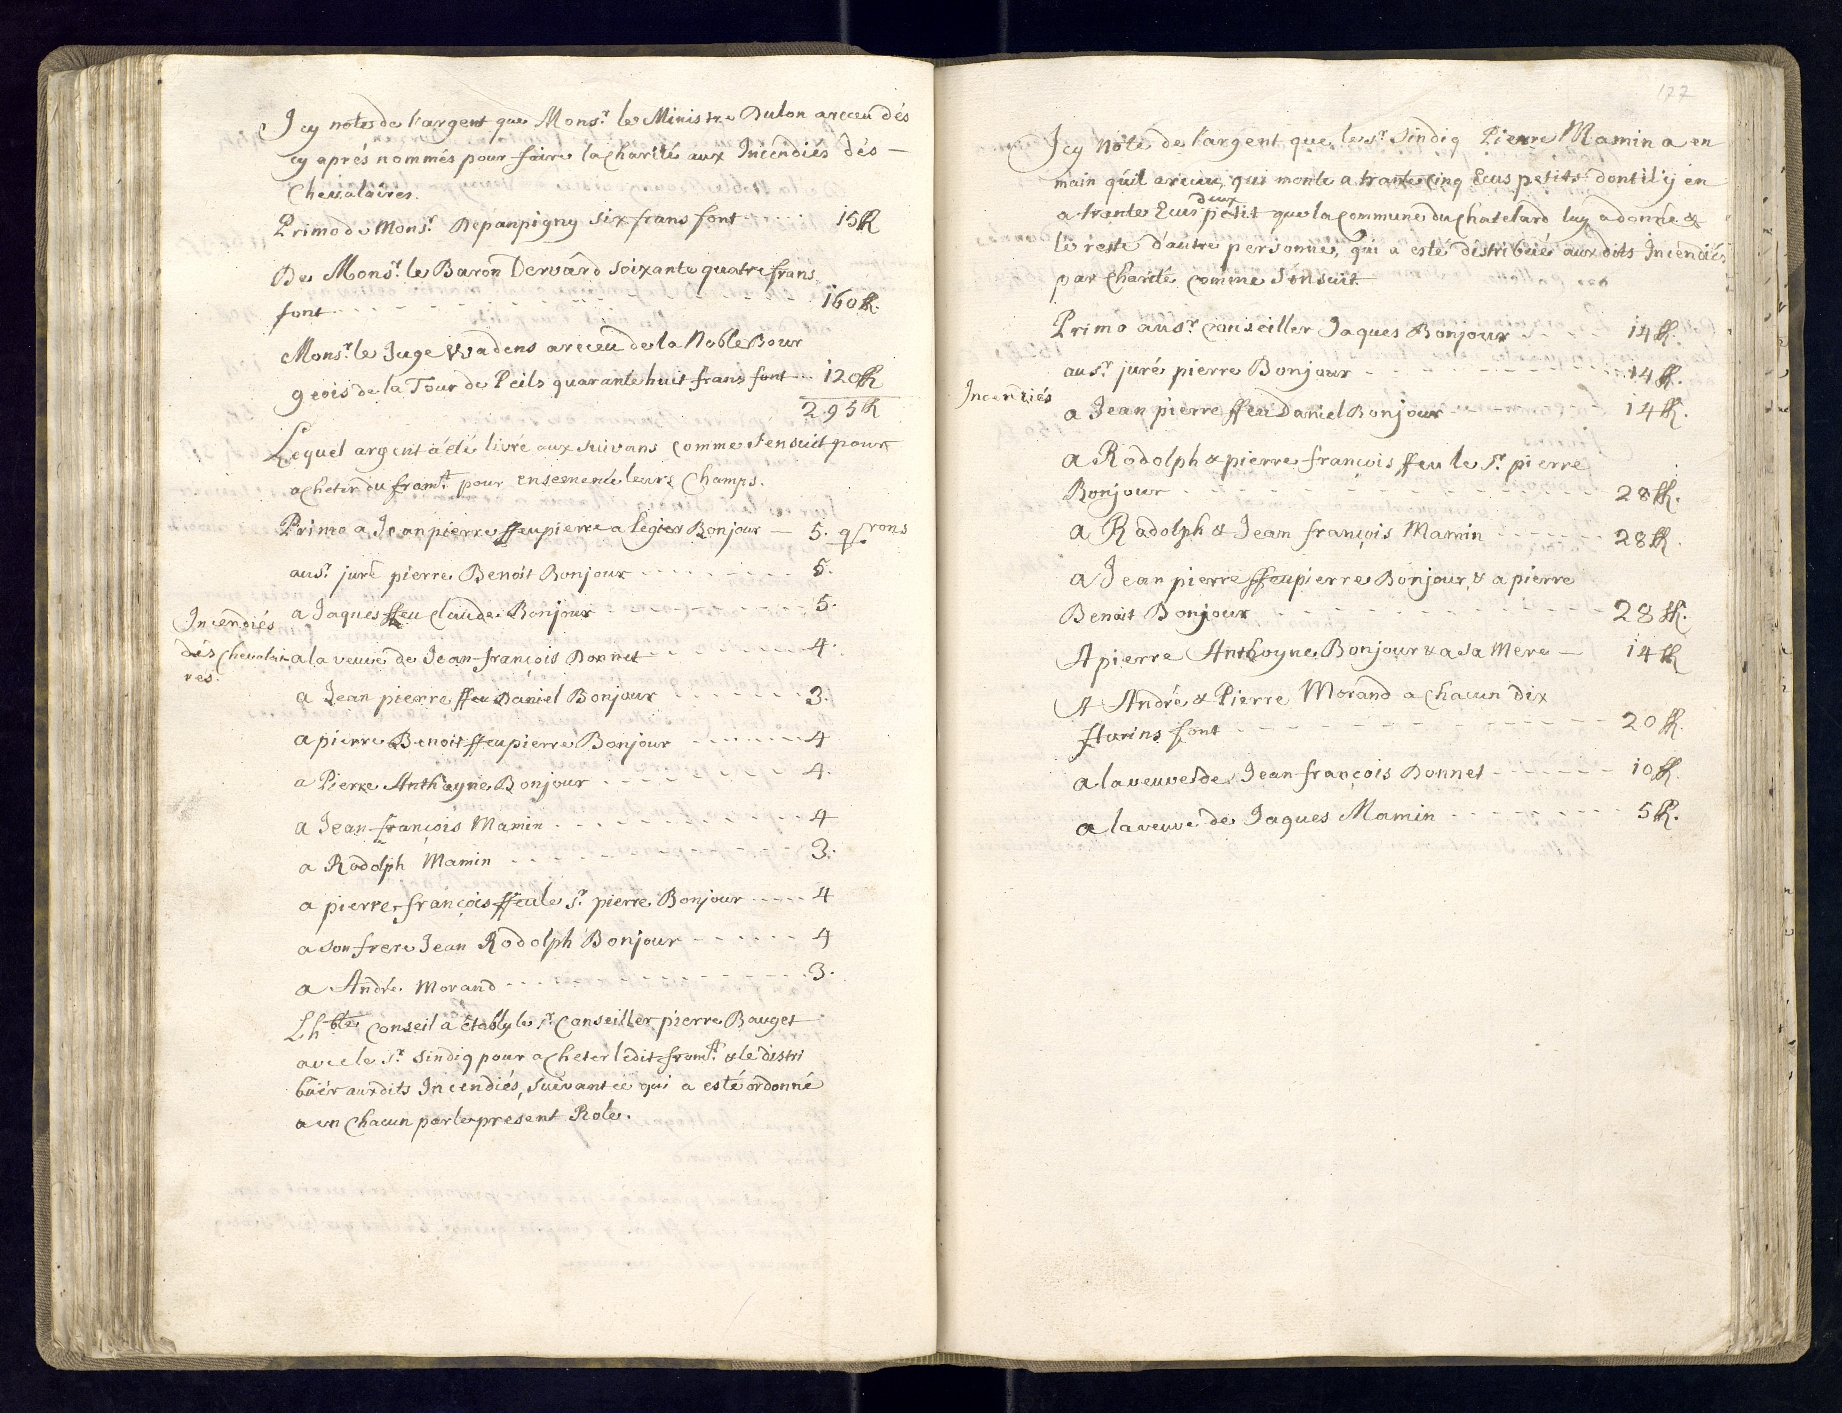 Icy note de l'argent que Mons.r le Ministre Dulon a receu dés
cy aprés nommés pour faire la charité aux Incendiés dés
Chevalaires.
Primo de Mons.r Depanpigny six frans font 15 ff
De Mons.r le Baron Dervard soixante quatre frans
font 160 ff.
Mons.r le Juge Vvadens a receu de la Noble Bour
geois de la Tour de Peils quarante huit frans font 120 ff
295 ff
Lequel argent a été livré aux suivans comme s'ensuit pour
acheter du from.t pour ensemencé leurs Champs.
Primo a Jean pierre ffeu pierre a legier Bonjour 5. q rons
au s.r juré pierre Benoit Bonjour 5.
a Jaques ffeu Claude Bonjour 5.
Incendiés
dés Chevalai
res.
a la veuve de Jean-françois Bonnet 4.
a Jean pierre ffeu Daniel Bonjour 3.
a pierre Benoit ffeu pierre Bonjour 4
a Pierre Anthoyne Bonjour 4.
a Jean-françois Mamin 4
a Rodolph Mamin 3.
a pierre françois ffeu le S.r pierre Bonjour 4
a son frere Jean Rodolph Bonjour 4
a André Morand 3.
L'h.ble Conseil a étably le s.r Conseiller pierre Bauget
avec le S.r Sindiq pour acheter ledit from.t & le distri
buér auxdits Incendiés, suivant ce qui a esté ordonné
a un chacun par le present Role.
177
Icy Note de l'argent que le s.r Sindiq Pierre Mamin a en
main qu'il a receu, qui monte a trante cinq Ecus petits dont il y en
deux
a trente Ecus petit que la commune du Chatelard luy a donné &
le reste d'autre personne, qui a esté distribué auxdits Incendiés
par Charité comme s'ensuit
Primo au s.r Conseiller Jaques Bonjour 14 ff.
au s.r juré pierre Bonjour 14 ff.
Incendiés
a Jean pierre ffeu Daniel Bonjour 14 ff.
a Rodolph & pierre françois ffeu le S.r pierre
Bonjour 28 ff.
a Rodolph & Jean françois Mamin 28 ff.
a Jean pierre ffeu pierre Bonjour, & a pierre
Benoit Bonjour 28 ff.
A pierre Anthoyne Bonjour & a sa Mere 14 ff
A André & Pierre Morand a chacun Dix
florins font 20 ff.
a la veuve de Jean-françois Bonnet 10 ff.
a la veuve de Jaques Mamin 5 ff.